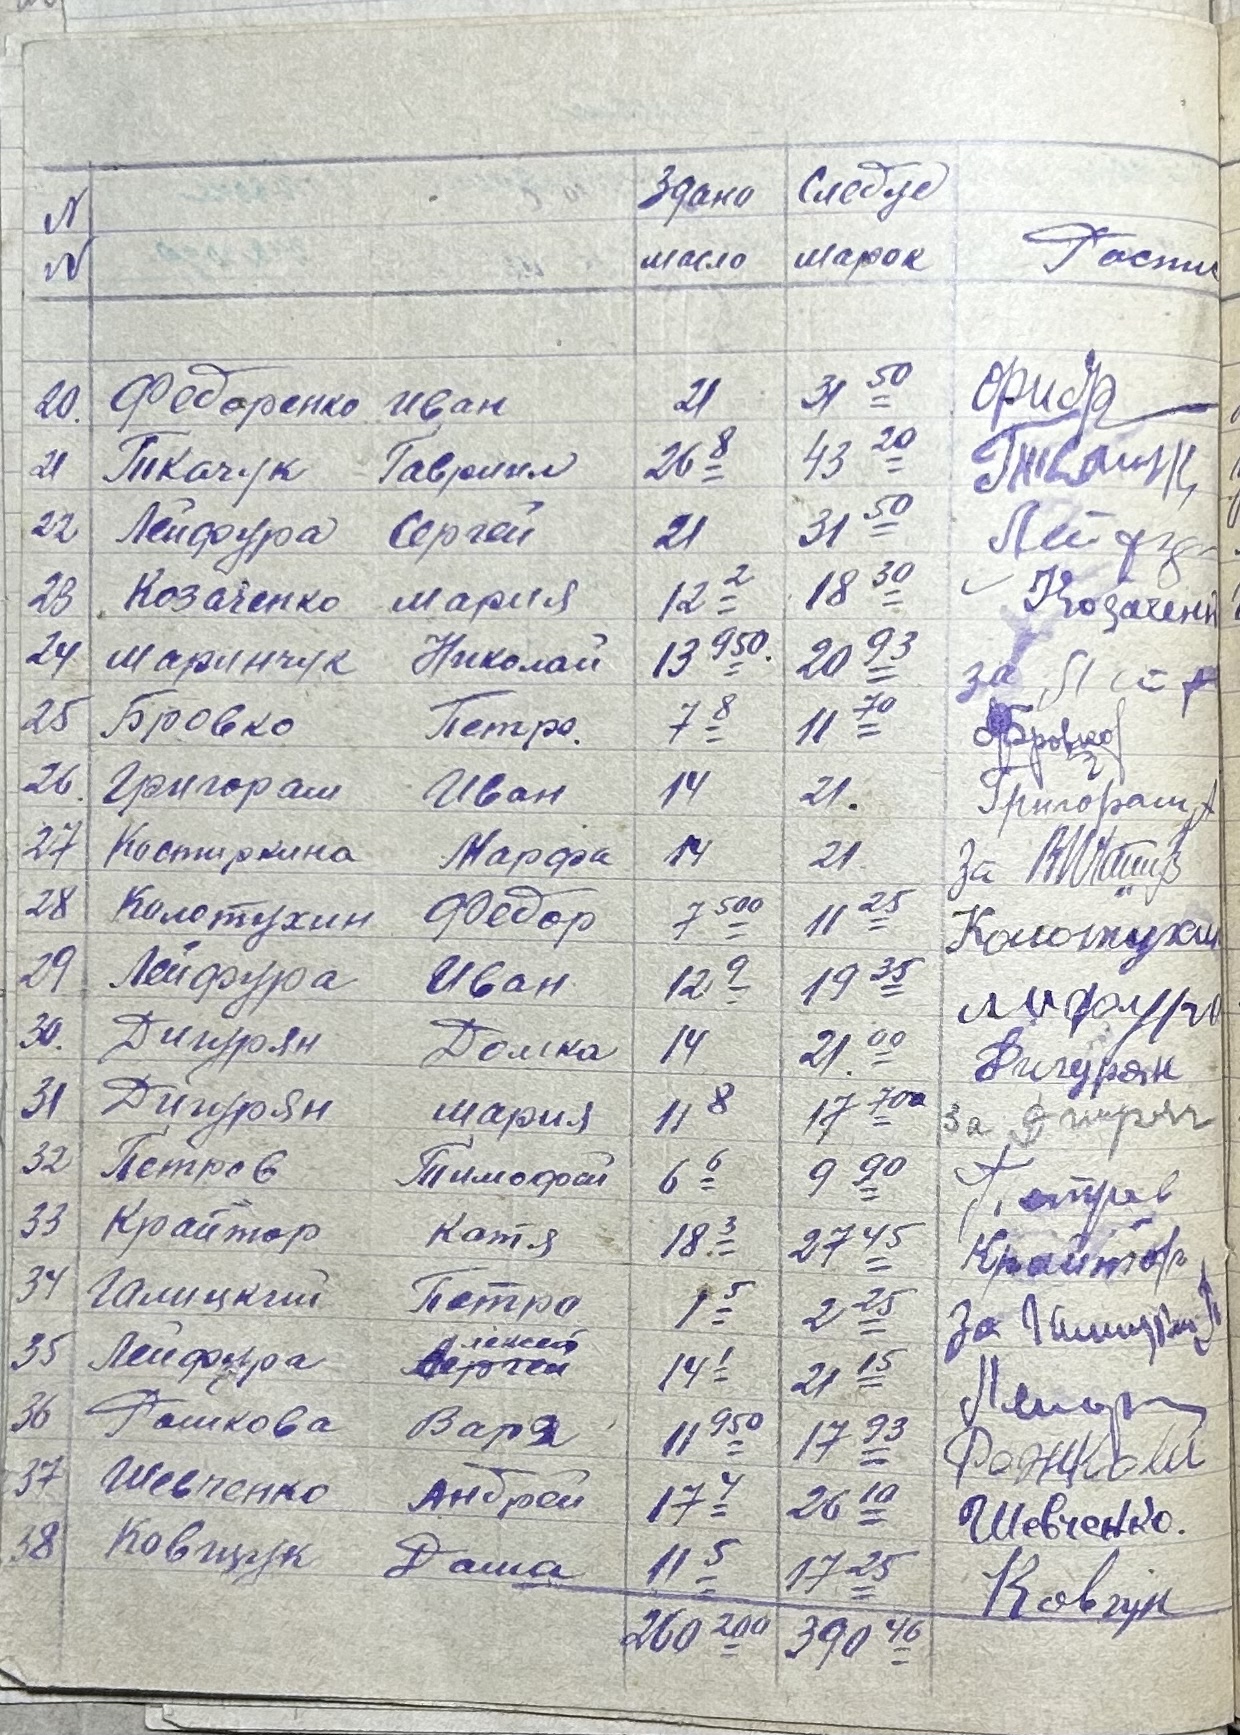 N Здано Следуе
N масло марок Роспи
20. Федоренко Иван 21 31 50
21 Ткачук Гавриил 26 8 43 20
22 Лейфура Сергей 21 31 50 Лейфур
23 Козаченко Мария 12 2 18 30 Козаченк
24 Маринчук Николай 13 950. 20 93 за
25 Бровко Петро. 7 8 11 70 Бровко
26. Григораш Иван 14 21. Григораш
27 Костиркина Марфа 14 21. За
28 Колотухин Федор 7 500 11 25 Колотухин
29 Лейфура Иван 12 9 19 35
30. Дигурян Домка 14 21. 00 Дигурян
31 Дигурян Мария 11 8 17 700 за Дигурян
32 Петров Тимофей 6 6 9 90 Петров
33 Крайтор Катя 18. 3 27 45 Крайтор
34 Галицкий Петро 1 5 2 25 За
35 Лейфура Алексей 14 1 21 15
36 Рошкова Варя 11 950 17 93
37 Шевченко Андрей 17 4 26 10 Шевченко.
38 Ковщук Даша 11 5 17 25
260 200 390 46